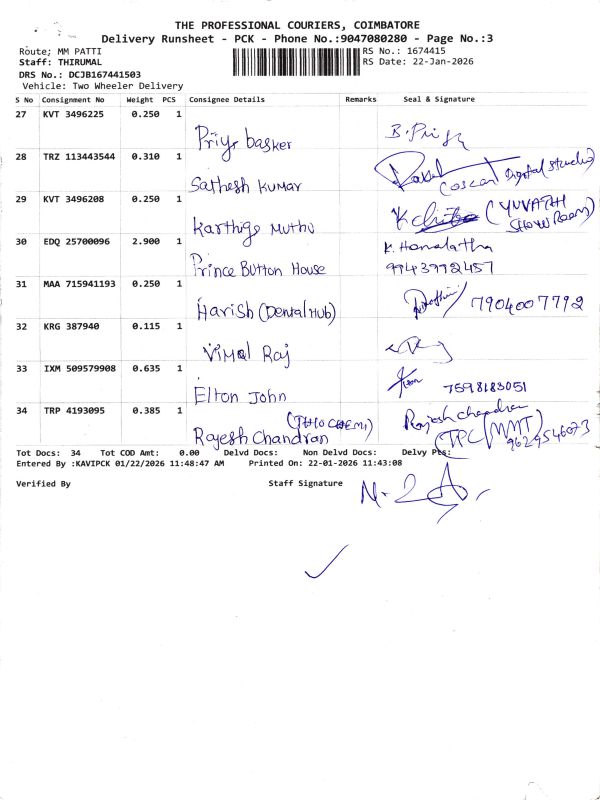 THE PROFESSIONAL COURIERS, COIMBATORE
Delivery Runsheet - PCK - Phone No.:9047080280 - Page No.:3
Route; MM PATTI
RS No.: 1674415
Staff: THIRUMAL
RS Date: 22-Jan-2026
DRS No.: DCJB167441503
Vehicle: Two Wheeler Delivery
S No Consignment No Weight PCS Consignee Details Remarks Seal & Signature
27 KVT 3496225 0.250 1
Priya basker B. Priya
28 TRZ 113443544 0.310 1
Sathesh Kumar (Coscan Digital Studio)
29 KVT 3496208 0.250 1
Karthigo Muthu K (YUVATHI SHOW ROOM)
30 EDQ 25700096 2.900 1 K. Hemalatha
Prince Button House 9943992457
31 MAA 715941193 0.250 1
Harish (Dental Hub) 7904007792
32 KRG 387940 0.115 1
Vimal Raj
33 IXM 509579908 0.635 1
Elton John 7598183051
34 TRP 4193095 0.385 1 Rajesh Chandran
Rajesh Chandran (TPC/MMT)
9629546073
Tot Docs: 34 Tot COD Amt: 0.00 Delvd Docs: Non Delvd Docs: Delvy Pts:
Entered By :KAVIPCK 01/22/2026 11:48:47 AM Printed On: 22-01-2026 11:43:08
Verified By Staff Signature